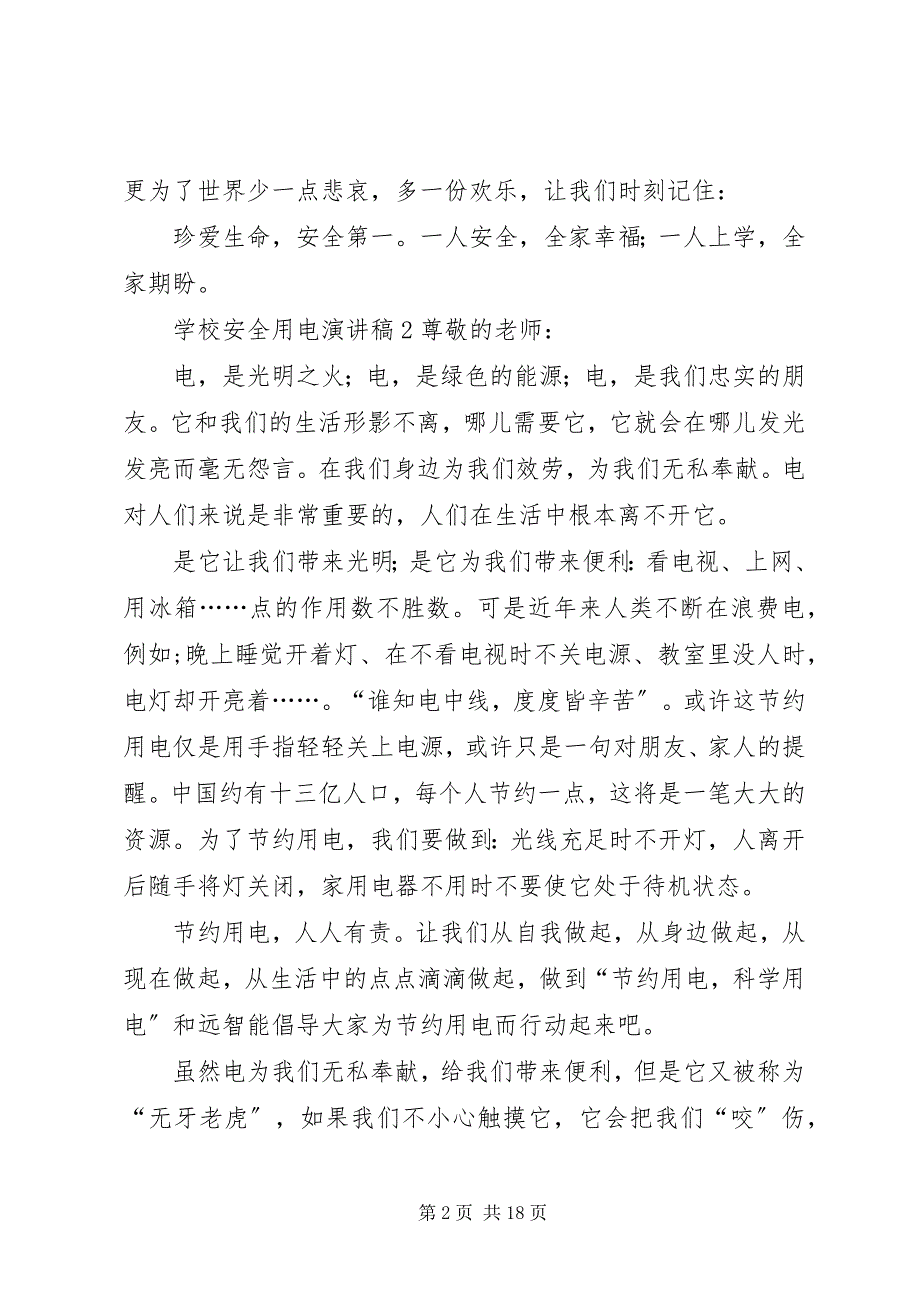 更为了世界少一点悲哀，多一份欢乐，让我们时刻记住：
珍爱生命，安全第一。一人安全，全家幸福；一人上学，全
家期盼。
学校安全用电演讲稿 2 尊敬的老师：
电，是光明之火；电，是绿色的能源；电，是我们忠实的朋
友。它和我们的生活形影不离，哪儿需要它，它就会在哪儿发光
发亮而毫无怨言。在我们身边为我们效劳，为我们无私奉献。电
对人们来说是非常重要的，人们在生活中根本离不开它。
是它让我们带来光明；是它为我们带来便利：看电视、上网、
用冰箱……点的作用数不胜数。可是近年来人类不断在浪费电，
例如;晚上睡觉开着灯、在不看电视时不关电源、教室里没人时，
电灯却开亮着……。“谁知电中线，度度皆辛苦〞。或许这节约
用电仅是用手指轻轻关上电源，或许只是一句对朋友、家人的提
醒。中国约有十三亿人口，每个人节约一点，这将是一笔大大的
资源。为了节约用电，我们要做到：光线充足时不开灯，人离开
后随手将灯关闭，家用电器不用时不要使它处于待机状态。
节约用电，人人有责。让我们从自我做起，从身边做起，从
现在做起，从生活中的点点滴滴做起，做到“节约用电，科学用
电〞和远智能倡导大家为节约用电而行动起来吧。
虽然电为我们无私奉献，给我们带来便利，但是它又被称为
“无牙老虎〞，如果我们不小心触摸它，它会把我们“咬〞伤，
第 2 页 共 18 页